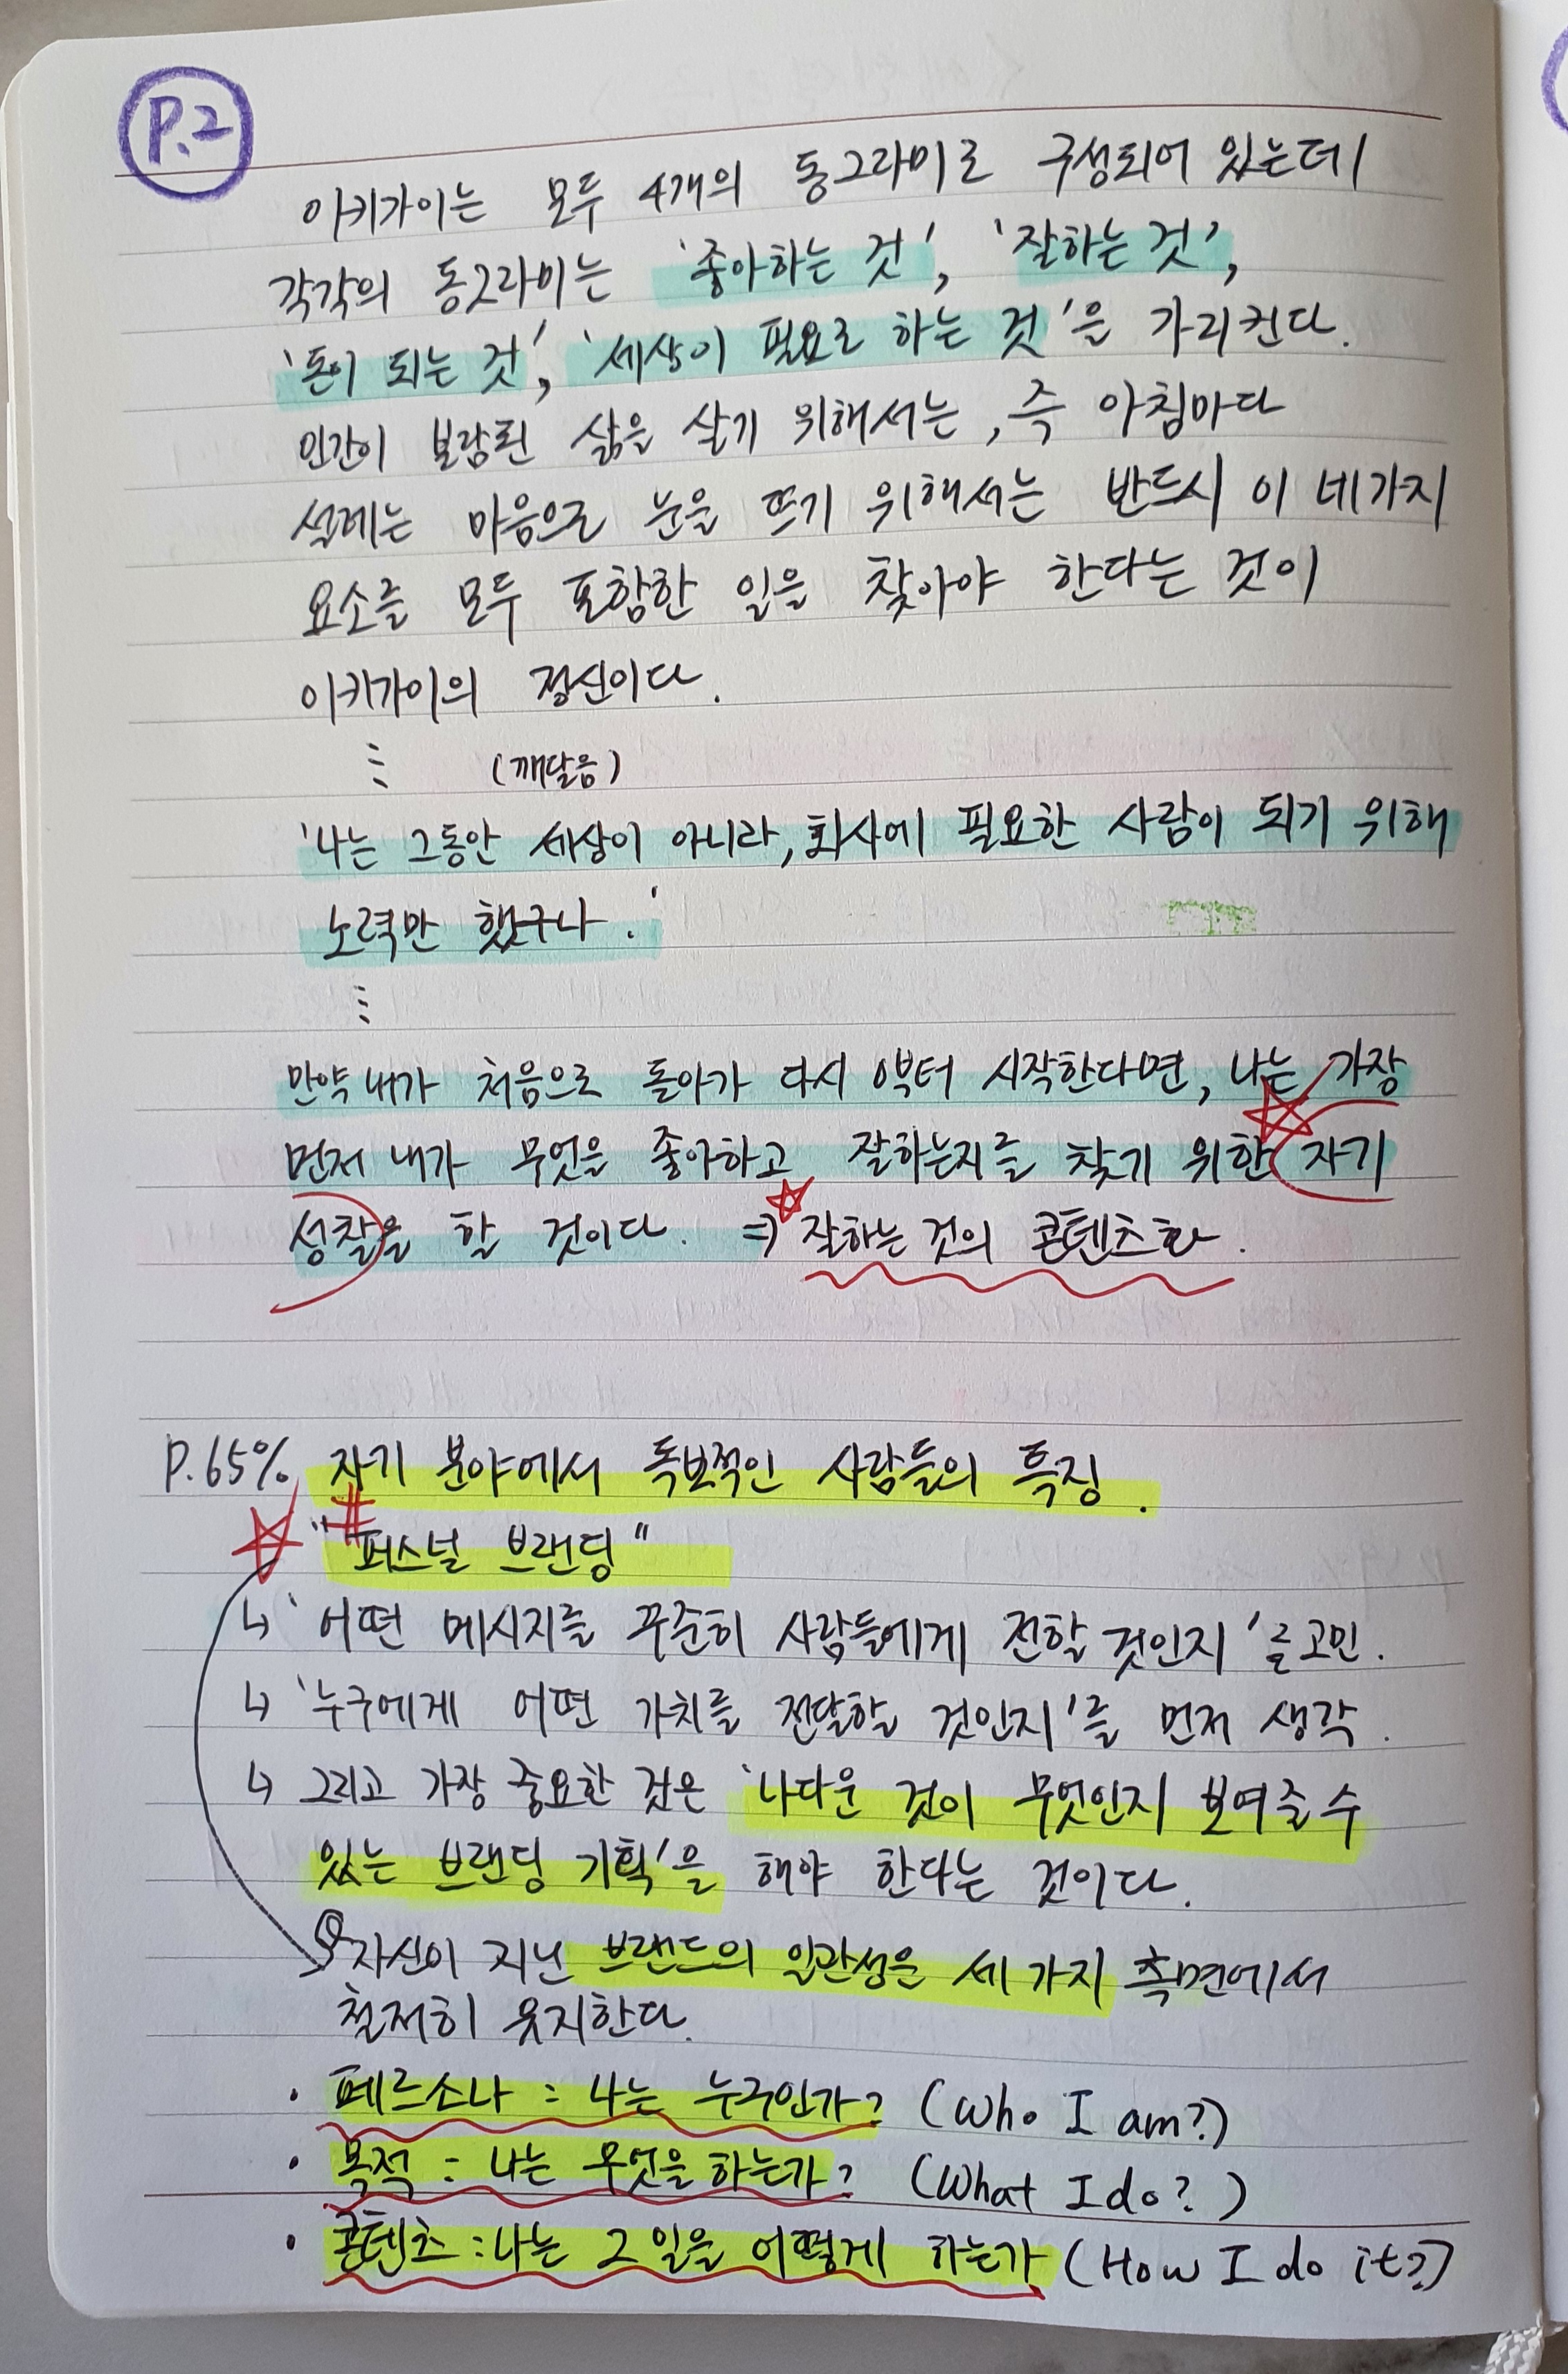 P.2
이키가이는 모두 4개의 동그라미로 구성되어 있는데
각각의 동그라미는 '좋아하는 것', '잘하는 것',
'돈이 되는 것', '세상이 필요로 하는 것'을 가리킨다.
인간이 보람된 삶을 살기 위해서는, 즉 아침마다
설레는 마음으로 눈을 뜨기 위해서는 반드시 이 네가지
요소를 모두 포함한 일을 찾아야 한다는 것이
이키가이의 정신이다.
⋮ (깨달음)
'나는 그동안 세상이 아니라, 회사에 필요한 사람이 되기 위해
노력만 했구나.'
⋮
만약 내가 처음으로 돌아가 다시 0부터 시작한다면, 나는 가장
먼저 내가 무엇을 좋아하고 잘하는지를 찾기 위한 자기
성찰을 할 것이다. => 잘하는 것의 콘텐츠화.
P.65% 자기 분야에서 독보적인 사람들의 특징.
"#퍼스널 브랜딩"
↳ '어떤 메시지를 꾸준히 사람들에게 전할 것인지'를 고민.
↳ '누구에게 어떤 가치를 전달할 것인지'를 먼저 생각.
↳ 그리고 가장 중요한 것은 '나다운 것이 무엇인지 보여줄 수
있는 브랜딩 기획'을 해야 한다는 것이다.
자신이 지닌 브랜드의 일관성을 세 가지 측면에서
철저히 유지한다.
· 페르소나 : 나는 누구인가? (Who I am?)
· 목적 : 나는 무엇을 하는가? (What I do?)
· 콘텐츠 : 나는 그 일을 어떻게 하는가 (How I do it?)